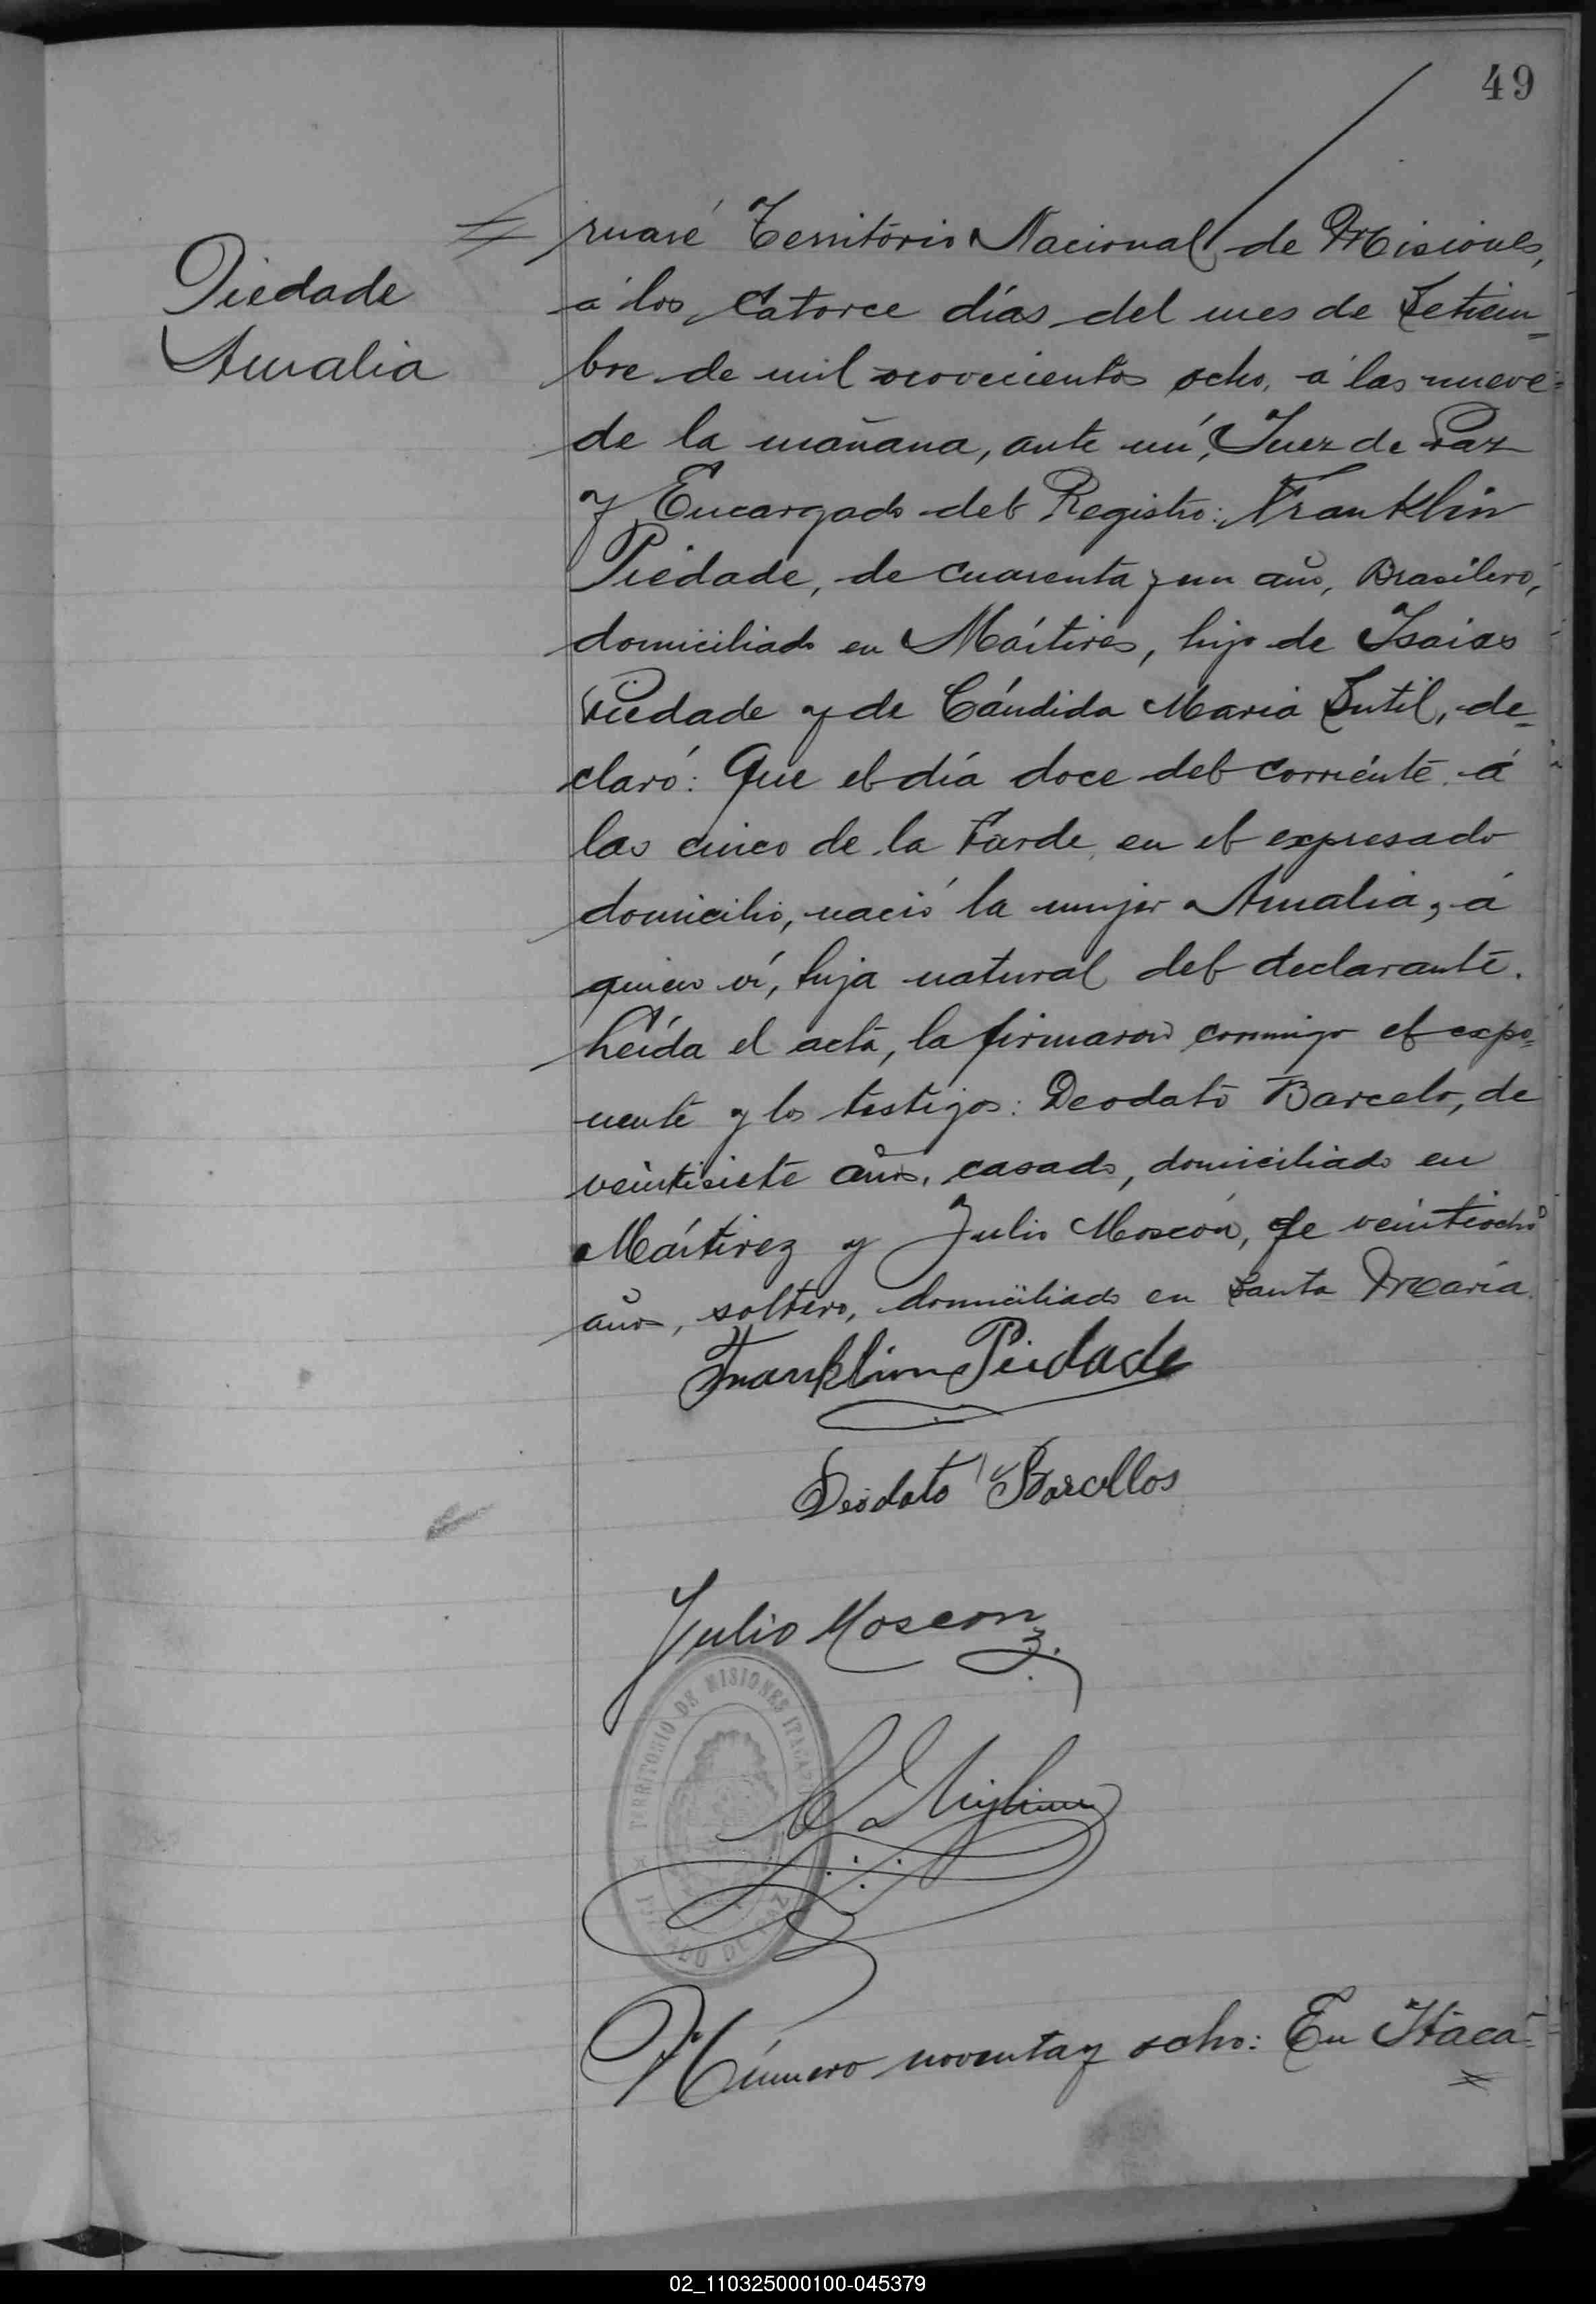 49
Piedade
Amalia
ruaré Territorio Nacional de Misiones,
á los Catorce días del mes de Setiem=
bre de mil novecientos ocho, á las nueve
de la mañana, ante mí, Juez de Paz
y Encargado del Registro: Franklin
Piedade, de cuarenta y un año, Brasilero,
domiciliado en Mártires, hijo de Isaias
Piedade y de Cándida Maria Sutil, de=
claró: Que el día doce del corriente á
las cinco de la tarde, en el expresado
domicilio, nació la mujer Amalia, á
quien ví, hija natural del declarante.
Leída el acta, la firmaron conmigo el expo=
nente y los testigos: Deodato Barcelo, de
veintisiete años, casado, domiciliado en
Mártirez y Julio Moscón, de veintiocho
años, soltero, domiciliado en Santa María.
Franklim Piedade
Deodato Barcellos
Julio Moscon
TERRITORIO DE MISIONES
Número noventa y ocho: En Itaca=
02_110325000100-045379